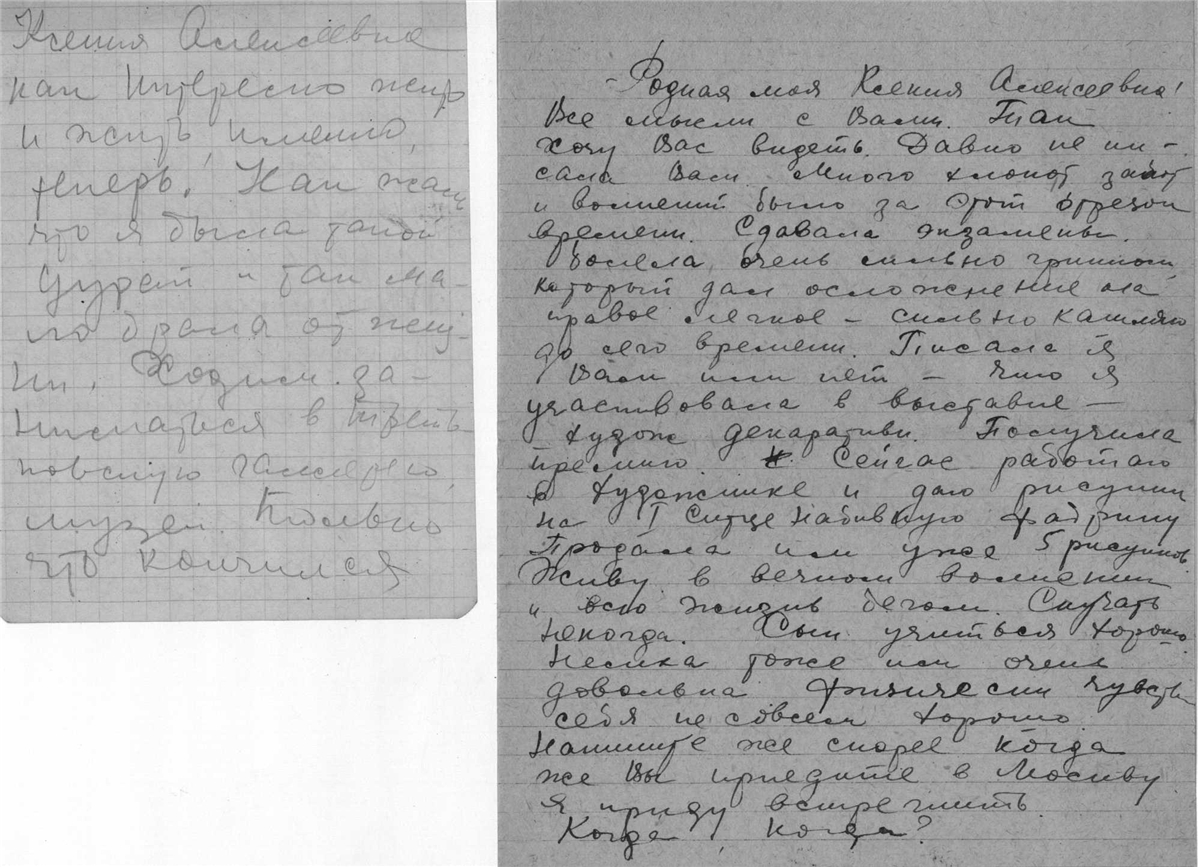 Ксения Алексеевна
как интересно жить
и жить именно,
теперь. Как жаль
что я была такой
дурой и так ма-
ло брала от жиз-
ни. Ходим за-
ниматься в Треть
яковскую галлерею,
музеи. Только
что кончился
Родная моя Ксения Алексеевна!
Все мысли с Вами. Так
хочу Вас видеть. Давно не пи-
сала Вам. Много хлопот забот
и волнений было за этот отрезок
времени. Сдавала экзамены.
Болела очень сильно гриппом,
который дал осложнение на
правое легкое – сильно кашляю
до сего времени. Писала я
Вам или нет – что я
участвовала в выставке –
худож декаративн. Получила
премию. Сейчас работаю
в художнике и даю рисунки
на I Ситценабивную фабрику
Продала им уже 5 рисунков
Живу в вечном волнении
и всю жизнь бегом. Скучать
некогда. Сын учиться хорошо
тоже им очень
довольна физически чувств
себя не совсем хорошо
Напишите же скорее когда
же Вы приедите в Москву
я приду встречить
Когда, когда?